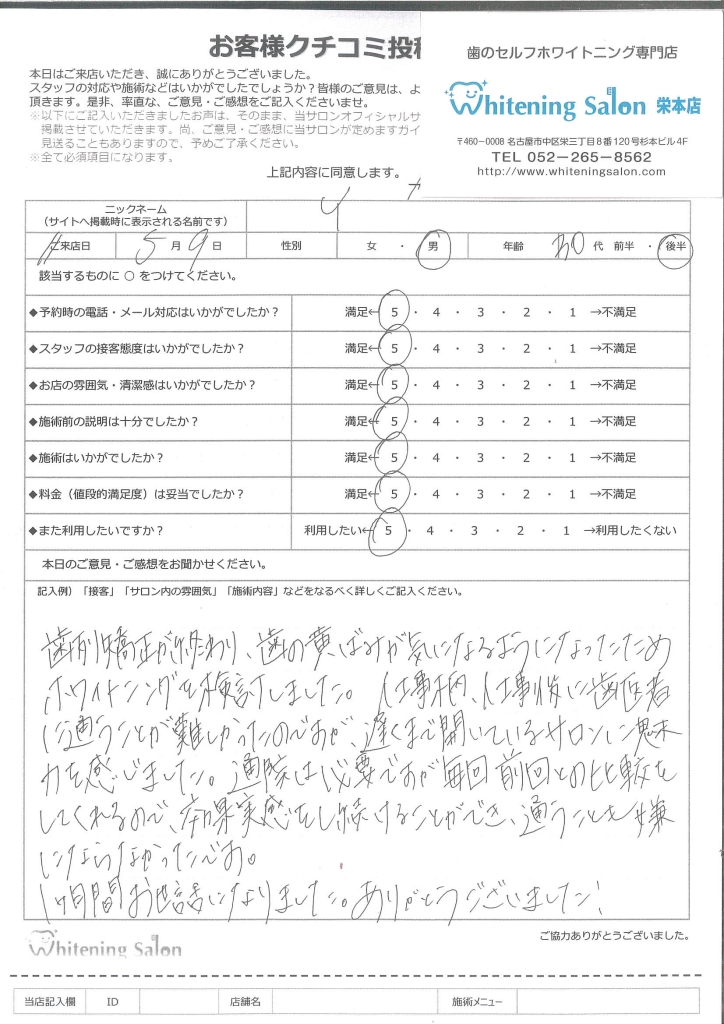 お客様クチコミ投稿
本日はご来店いただき、誠にありがとうございました。
スタッフの対応や施術などはいかがでしたでしょうか？皆様のご意見は、よ
頂きます。是非、率直な、ご意見・ご感想をご記入くださいませ。
※以下にご記入いただきましたお声は、そのまま、当サロンオフィシャルサ
掲載させていただきます。尚、ご意見・ご感想に当サロンが定めますガイ
見送ることもありますので、予めご了承ください。
※全て必須項目になります。
上記内容に同意します。
歯のセルフホワイトニング専門店
Whitening Salon 栄本店
〒460-0008 名古屋市中区栄三丁目8番120号杉本ビル4F
TEL 052-265-8562
http://www.whiteningsalon.com
ニックネーム
（サイトへ掲載時に表示される名前です）
ご来店日 5月9日 性別 女・男 年齢 30代 前半・後半
該当するものに ○ をつけてください。
◆予約時の電話・メール対応はいかがでしたか？ 満足← 5 ・ 4 ・ 3 ・ 2 ・ 1 →不満足
◆スタッフの接客態度はいかがでしたか？ 満足← 5 ・ 4 ・ 3 ・ 2 ・ 1 →不満足
◆お店の雰囲気・清潔感はいかがでしたか？ 満足← 5 ・ 4 ・ 3 ・ 2 ・ 1 →不満足
◆施術前の説明は十分でしたか？ 満足← 5 ・ 4 ・ 3 ・ 2 ・ 1 →不満足
◆施術はいかがでしたか？ 満足← 5 ・ 4 ・ 3 ・ 2 ・ 1 →不満足
◆料金（値段的満足度）は妥当でしたか？ 満足← 5 ・ 4 ・ 3 ・ 2 ・ 1 →不満足
◆また利用したいですか？ 利用したい← 5 ・ 4 ・ 3 ・ 2 ・ 1 →利用したくない
本日のご意見・ご感想をお聞かせください。
記入例）「接客」「サロン内の雰囲気」「施術内容」などをなるべく詳しくご記入ください。
歯列矯正が終わり、歯の黄ばみが気になるようになったため
ホワイトニングを検討しました。仕事柄、仕事後に歯医者
に通うことが難しかったのですが、遅くまで開いているサロンに魅
力を感じました。通院は必要ですが毎回前回との比較を
してくれるので、効果実感をし続けることができ、通うことも嫌
にならなかったです。
1ヶ月間お世話になりました。ありがとうございました!
Whitening Salon
ご協力ありがとうございました。
当店記入欄 ID 店舗名 施術メニュー